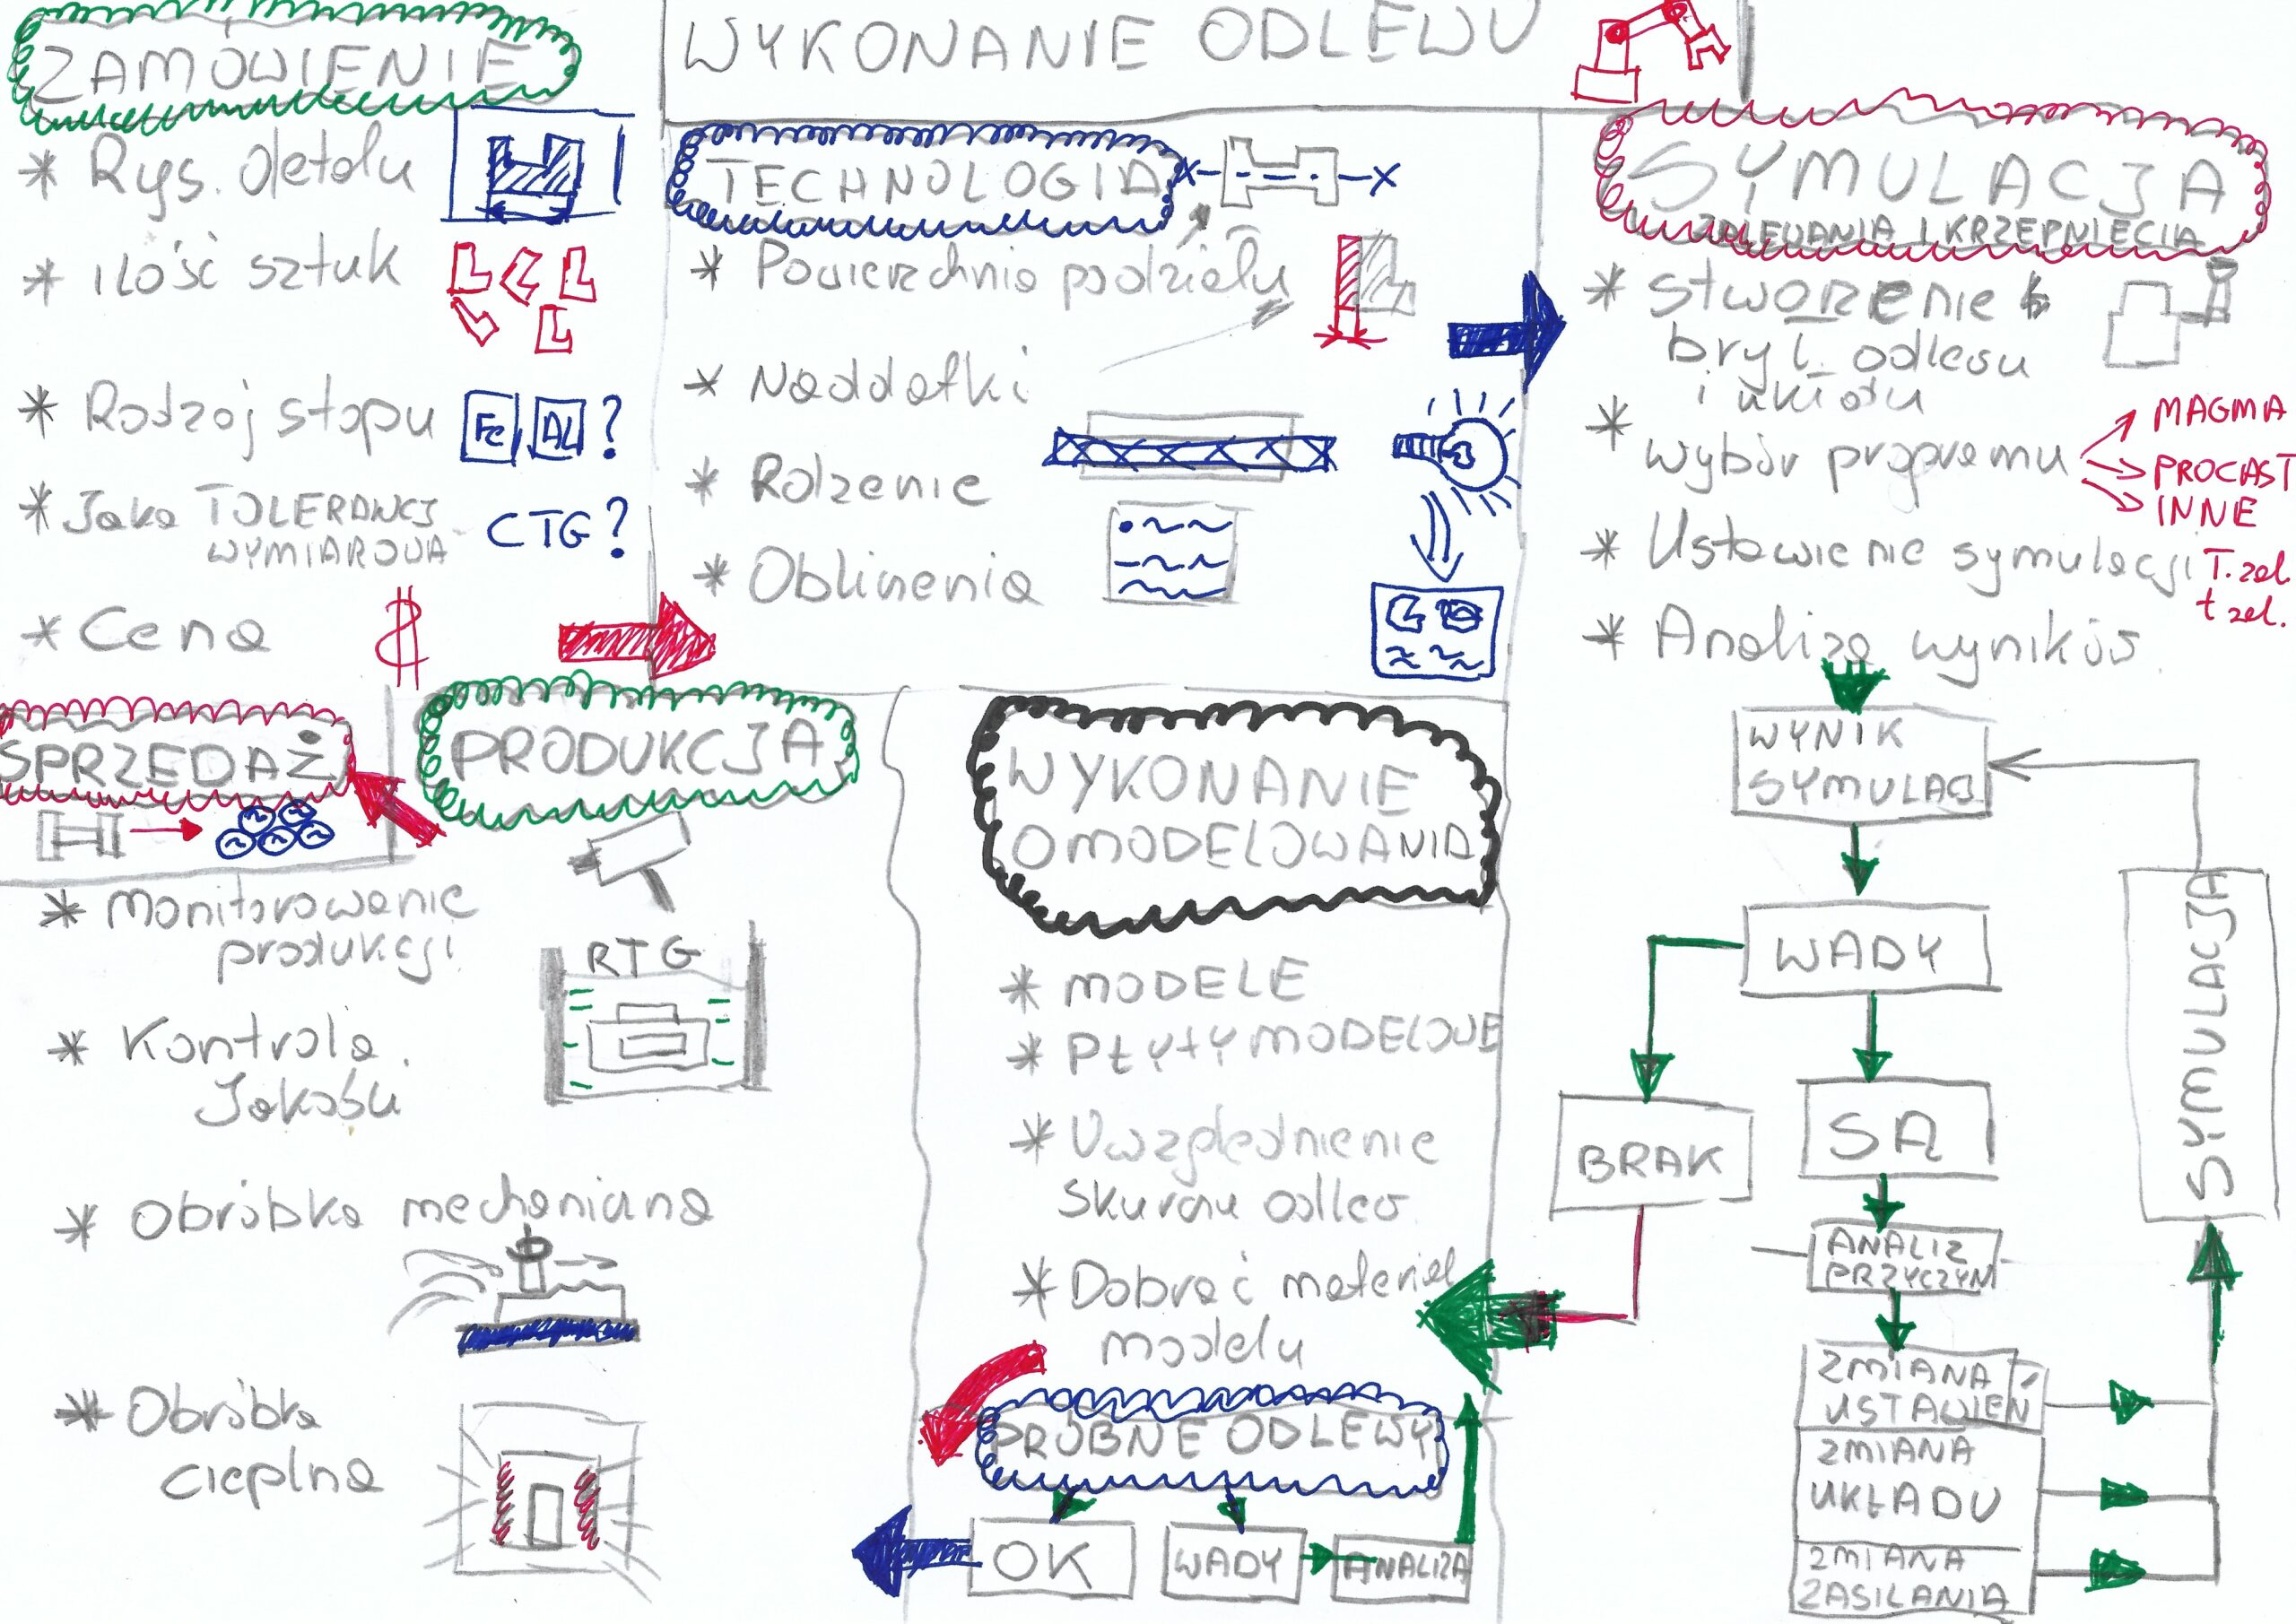 ZAMÓWIENIE
* Rys. detalu
* ilość sztuk
* Rodzaj stopu Fe / AL ?
* Jaka TOLERANCJ
WYMIAROWA CTG?
* Cena $
WYKONANIE ODLEWU
TECHNOLOGIA
* Powierzchnia podziału
* Naddatki
* Rdzenie
* Obliczenia
SYMULACJA
ZALEWANIA I KRZEPNIĘCIA
* Stworzenie
brył. odlewu
i układu
* wybór programu
MAGMA
PROCAST
INNE
* Ustawienie symulacji T. zal.
t zal.
* Analiza wyników
WYNIK
SYMULACJ
WADY
BRAK
SĄ
ANALIZ
PRZYCZYN
ZMIANA
USTAWIEŃ
ZMIANA
UKŁADU
ZMIANA
ZASILANIA
SYMULACJA
WYKONANIE
OMODELOWANIA
* MODELE
* PŁYTY MODELOWE
* Uwzględnienie
Skurczu odlew.
* Dobrać materiał
modelu
PRÓBNE ODLEWY
OK
WADY
ANALIZA
PRODUKCJA
* Monitorowanie
produkcji
RTG
* Kontrola
Jakości
* Obróbka mechaniczna
* Obróbka
cieplna
SPRZEDAŻ